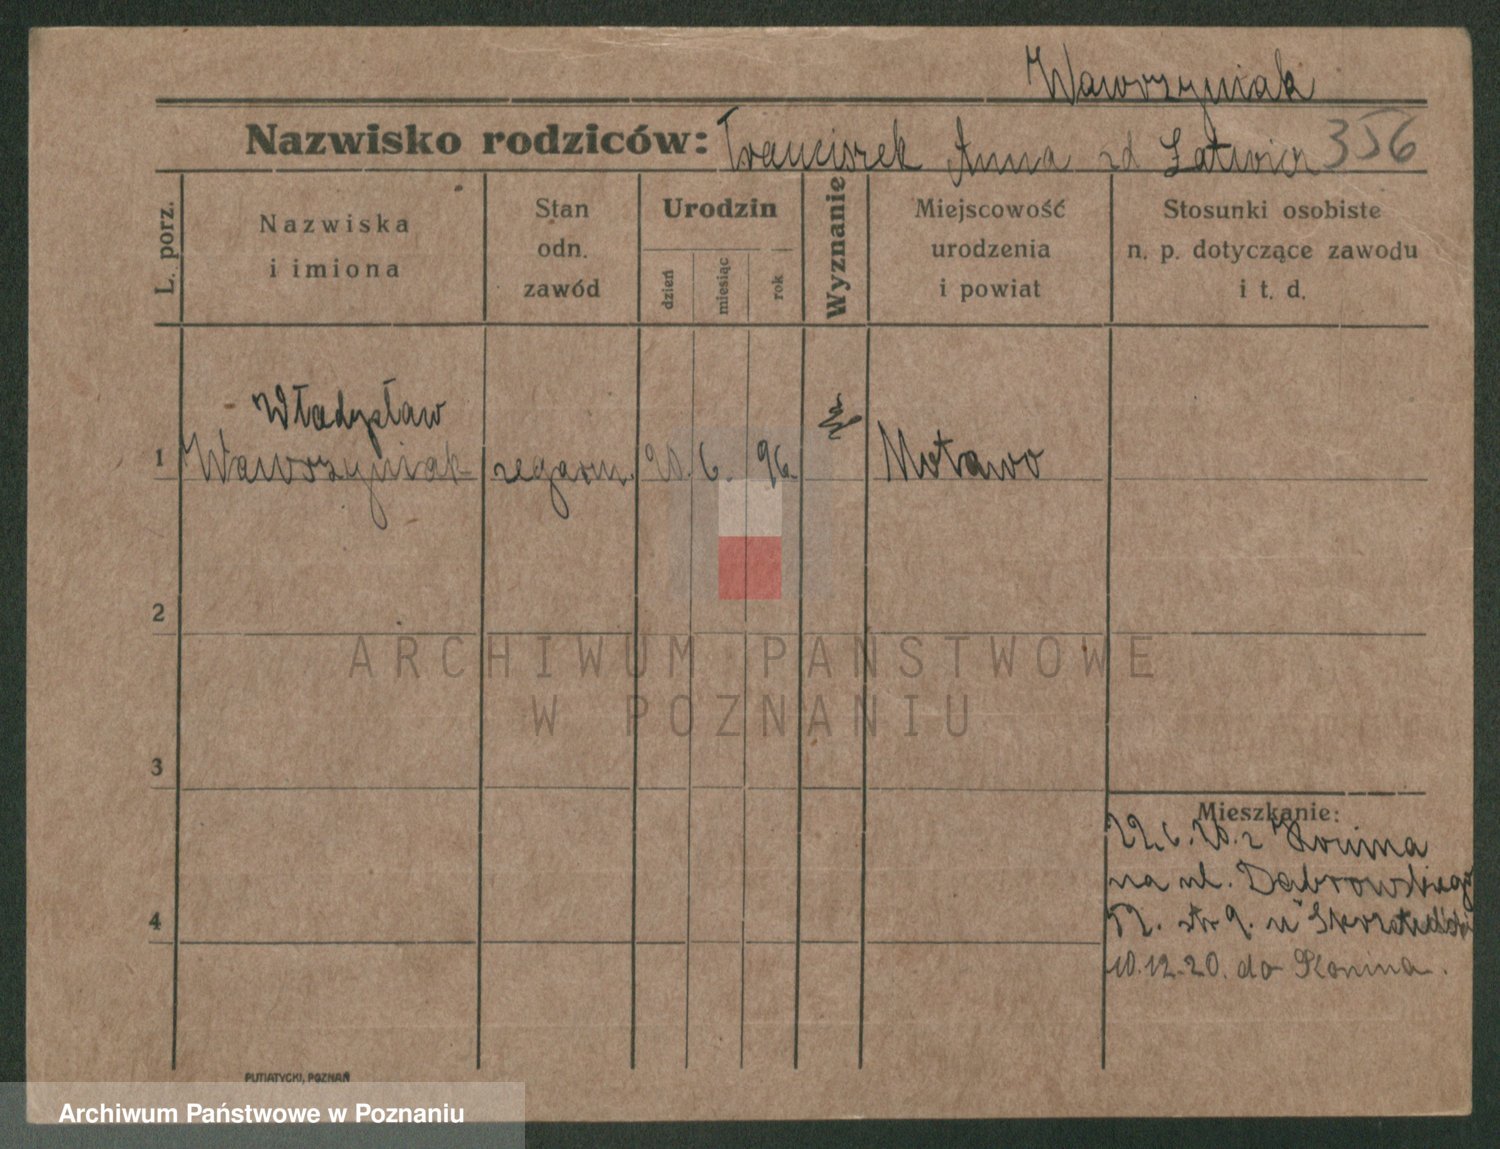 Wawrzyniak
Nazwisko rodziców: Franciszek Anna zd 356
L. porz.
Nazwiska
i imiona
Stan
odn.
zawód
Urodzin
dzień
miesiąc
rok
Wyznanie
Miejscowość
urodzenia
i powiat
Stosunki osobiste
n. p. dotyczące zawodu
i t. d.
Władysław
1 Wawrzyniak zegarm. 20. 6. 96. Motawo
2
3
4
Mieszkanie:
22.6.20. z
na ul. Dąbrowskiego
10.12.20. do Konina.
PUTIATYCKI, POZNAŃ
ARCHIWUM PAŃSTWOWE
W POZNANIU
Archiwum Państwowe w Poznaniu